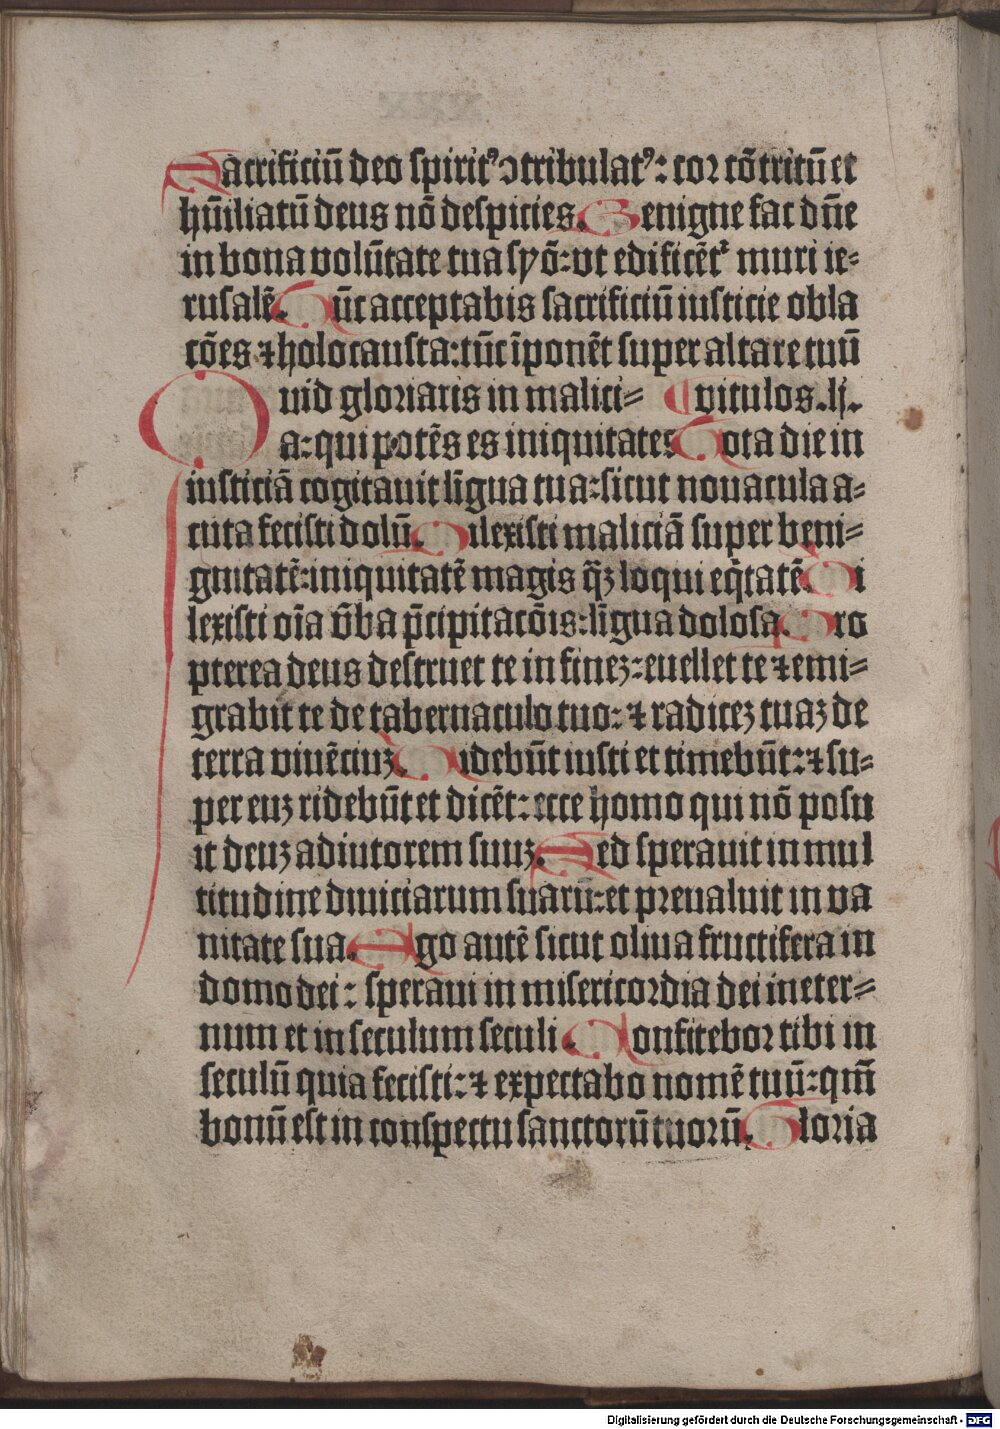 Sacrificiū deo spiritꝰ ↄtribulatꝰ: cor cōtritū et
hūiliatū deus nō despicies. Benigne fac dn̄e
in bona volūtate tua syō: vt edificēt᷑ muri ie⸗
rusalē. Tūc acceptabis sacrificiū iusticie obla
cōes ⁊ holocausta: tūc īponēt super altare tuū
Quid gloriaris in malici⸗ vitulos. lj.
a: qui potēs es iniquitate? Tota die in
iusticiā cogitauit līgua tua: sicut nouacula a⸗
cuta fecisti dolū. Dilexisti maliciā super beni⸗
gnitatē: iniquitatē magis q̄ꝫ loqui eq̄tatē. Di
lexisti oīa v̄ba p̄cipitacōis: līgua dolosa. Pro
pterea deus destruet te in fineꝫ: euellet te ⁊ emi⸗
grabit te de tabernaculo tuo: ⁊ radiceꝫ tuaꝫ de
terra viuēciuꝫ. Uidebūt iusti et timebūt: ⁊ su⸗
per euꝫ ridebūt et dicēt: ecce homo qui nō posu
it deuꝫ adiutorem suuꝫ. Sed sperauit in mul
titudine diuiciarum suarū: et preualuit in va
nitate sua. Ego autē sicut oliua fructifera in
domo dei: speraui in misericordia dei in eter⸗
num et in seculum seculi. Confitebor tibi in
seculū quia fecisti: ⁊ expectabo nomē tuū: qm̄
bonū est in conspectu sanctorū tuorū. Gloria
Digitalisierung gefördert durch die Deutsche Forschungsgemeinschaft - DFG